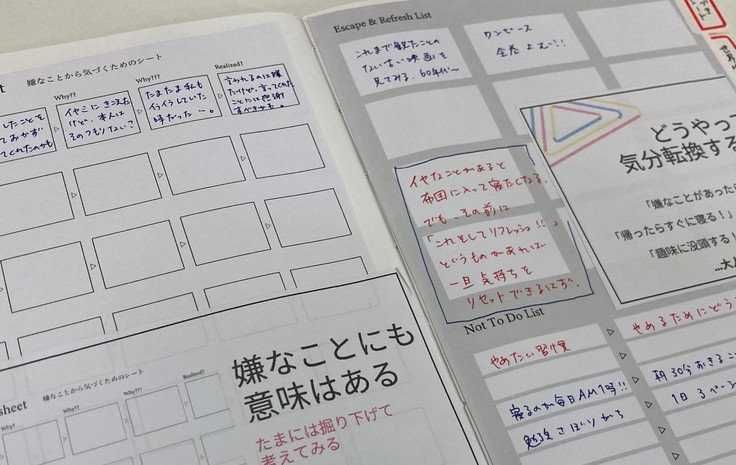 eet 嫌なことから気づくためのシート
Why??
Why???
Realized?
したことを
ておかず
てくれたのかも
イヤミにきこえた
けど、本人は
そのつもりない?
たまたま私も
イライラしていた
時だった…。
言われるのは嫌
だけど、言ってくれた
ことには感謝
すべきかも。
heet 嫌なことから気づくためのシート
Why?
Why??
Why???
Realized?
嫌なことにも
意味はある
たまには掘り下げて
考えてみる
Escape & Refresh List
これまで観たことの
ない古い映画を
見てみる、60年代~
ワンピース
全巻よむ!!
イヤなことがあると
布団に入って寝たくなる。
でも、その前に
「これをしてリフレッシュ!!」
というものがあれば
一旦気持ちを
リセットできるはず。
どうやって
気分転換する
「嫌なことがあったら
「帰ったらすぐに寝る!」
「趣味に没頭する!
...大人
Not To Do List
やめたい習慣
やめるためにどう
寝るのが毎日AM1時!!
朝30分おきるこ
勉強さぼりがち
1日3ページ